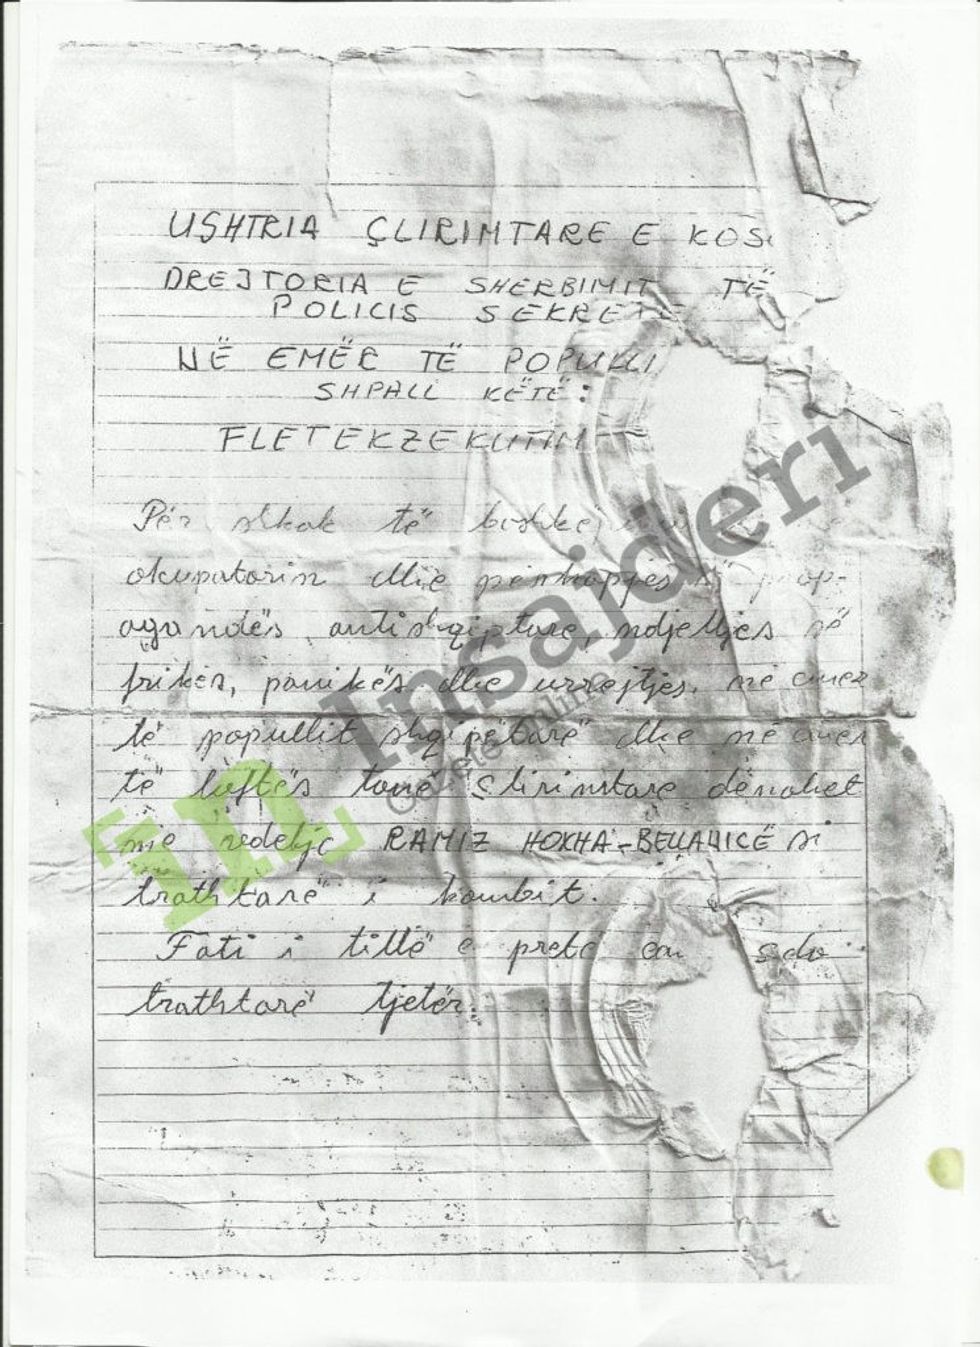 USHTRIA ÇLIRIMTARE E KOS
DREJTORIA E SHERBIMIT TË
POLICIS SEKRETE
NË EMËR TË POPULLI
SHPALL KËTË:
FLETEKZEKUTIM
Për shkak të
okupatorin dhe përhapjes së prop-
agandës antishqiptare, ndjelljes së
frikës, panikës dhe urrejtjes, në emër
të popullit shqipëtarë dhe në emër
të luftës tonë çlirimtare dënohet
me vdekje RAMIZ HOXHA-BELLANICË si
trathtarë i kombit.
Fati i tillë e pret çdo
trathtarë tjetër.
in Insajderi
Gazetë Online